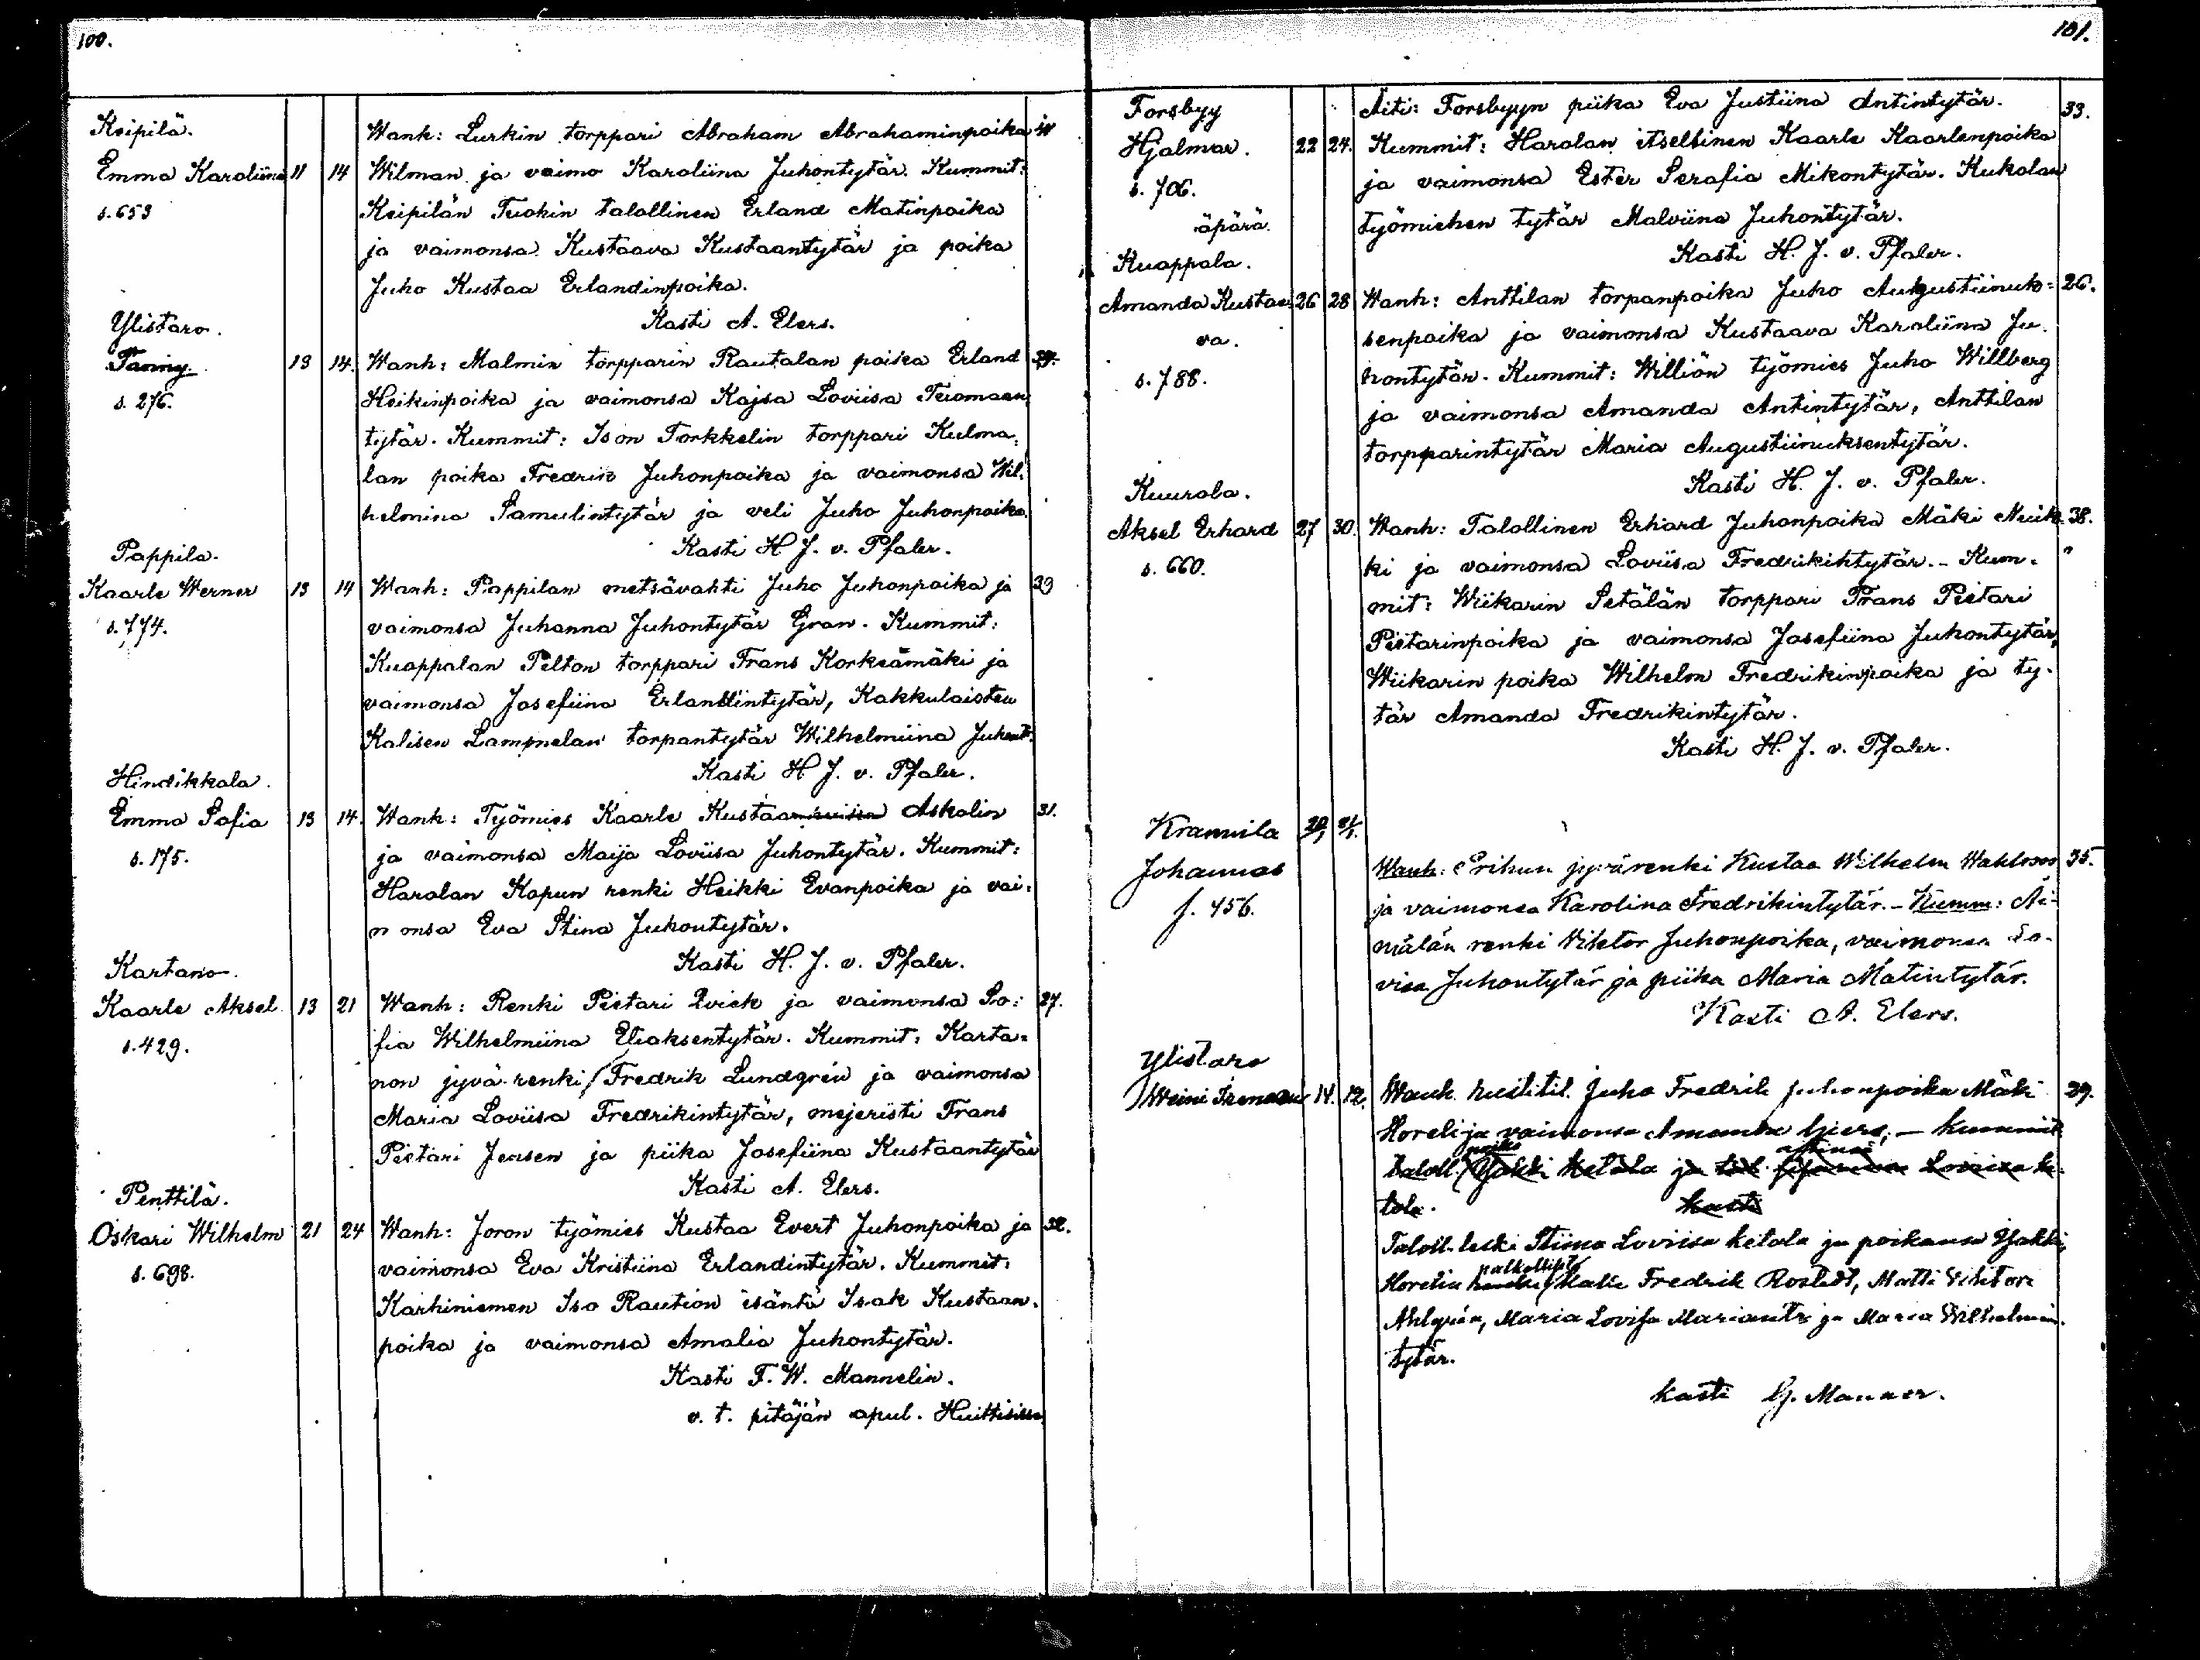 100.
Keipilä.
Wanh: Lurkin torppari Abraham Abrahaminpoika
Emma Karoliina 11 14 Wilman ja vaimo Karoliina Juhontytär. Kummit:
s. 653 Keipilän Tuokin talollinen Erland Matinpoika
ja vaimonsa Kustaava Kustaantytär ja poika
Juho Kustaa Erlandinpoika.
Kasti A. Elers.
Ylistaro.
Fanny 13 14. Wanh: Malmin torpparin Rautalan poika Erland
s. 276. Heikinpoika ja vaimonsa Kajsa Loviisa Tuomaan
tytär. Kummit: Ison Torkkelin torppari Kulma-
lan poika Fredrik Juhonpoika ja vaimonsa Wil-
helmina Samulintytär ja veli Juho Juhonpoika.
Kasti H J. v. Pfaler.
Pappila.
Kaarle Werner 13 14 Wanh: Pappilan metsävahti Juho Juhonpoika ja 39
s. 774. vaimonsa Juhanna Juhontytär Gran. Kummit:
Kuappalan Pelton torppari Frans Korkeamäki ja
vaimonsa Josefiina Erlandintytär, Kakkulaisten
Kalisen Lammelan torpantytär Wilhelmiina Juhont.
Kasti H J. v. Pfaler.
Hindikkala.
Emma Sofia 13 14. Wanh: Työmies Kaarle Kustaa Askolin 31.
s. 175. ja vaimonsa Maija Loviisa Juhontytär. Kummit:
Haralan Kapun renki Heikki Evanpoika ja vai-
monsa Eva Stina Juhontytär.
Kasti H. J. v. Pfaler.
Kartano.
Kaarle Aksel 13 21 Wanh: Renki Pietari Qvick ja vaimonsa So- 27.
s. 429. fia Wilhelmiina Eliaksentytär. Kummit: Karta-
non jyvä-renki Fredrik Lundgrén ja vaimonsa
Maria Loviisa Fredrikintytär, mejeristi Frans
Pietari Jensen ja piika Josefiina Kustaantytär
Kasti A. Elers.
Penttilä.
Oskari Wilhelm 21 24 Wanh: Joron työmies Kustaa Evert Juhonpoika ja 32.
s. 698. vaimonsa Eva Kristiina Erlandintytär. Kummit:
Karhiniemen Iso Raution isäntä Isak Kustaan-
poika ja vaimonsa Amalia Juhontytär.
Kasti F. W. Mannelin.
v. t. pitäjän apul. Huittisissa
101.
Forsbyy Äiti: Forsbyyn piika Eva Justiina Antintytär. 33.
Hjalmar. 22 24. Kummit: Haralan itsellinen Kaarle Kaarlenpoika
s. 706. ja vaimonsa Ester Serafia Mikontytär. Kukolan
äpärä. työmiehen tytär Malviina Juhontytär.
Kasti H. J. v. Pfaler.
Kuappala.
Amanda Kustaa- 26 28 Wanh: Anttilan torpanpoika Juho Augustiinuk- 26.
va. senpoika ja vaimonsa Kustaava Karoliina Ju-
s. 788. hontytär. Kummit: Williön työmies Juho Willberg
ja vaimonsa Amanda Antintytär, Anttilan
torpparintytär Maria Augustiinuksentytär.
Kasti H. J. v. Pfaler.
Kuurola.
Aksel Erhard 27 30. Wanh: Talollinen Erhard Juhonpoika Mäki Neuk- 38.
s. 660. ki ja vaimonsa Loviisa Fredrikintytär. - Kum- "
mit: Wiikarin Setälän torppari Frans Pietari
Pietarinpoika ja vaimonsa Josefiina Juhontytär,
Wiikarin poika Wilhelm Fredrikinpoika ja ty-
tär Amanda Fredrikintytär.
Kasti H. J. v. Pfaler.
Krannila
Johannes Wanh: Erikun jyvärenki Kustaa Wilhelm Wahlroos 35.
f. 456. ja vaimonsa Karolina Fredrikintytär. - Kumm: Äi-
mälän renki Viktor Juhonpoika, vaimonsa Lo-
visa Juhontytär ja piika Maria Matintytär.
Kasti A. Elers.
Ylistaro
Weini 14. 12. Wanh. Juho Fredrik Juhonpoika Mäki 29.
Horeli ja vaimonsa Amanda - kummit
taloll. Ketola ja Loviisa Ke-
tola. kasti
Taloll. leski Stiina Loviisa Ketola ja poikansa
Horelin palkolliset Kalle Fredrik Rostedt, Matti Viktor
Ahlgrén, Maria Lovisa ja Maria Wilhelmin-
tytär.
kasti G. Manner.